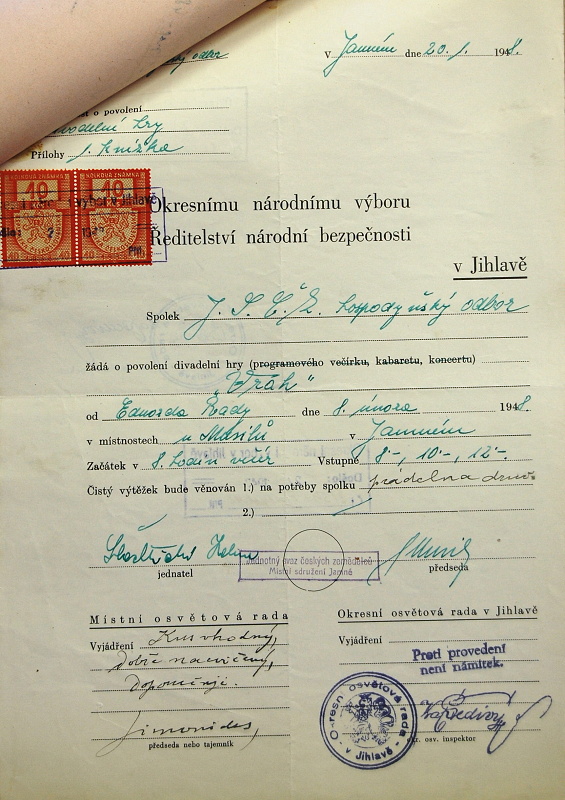 odbor
V Jamném dne 20./1. 1948.
o povolení
hry
Přílohy 1 knížka
KOLKOVÁ ZNÁMKA KOLKOVÁ ZNÁMKA
10 10
v Jihlavě
Okresnímu národnímu výboru
Ředitelství národní bezpečnosti
v Jihlavě
Spolek J. S. Č. Z. hospodyňský odbor
žádá o povolení divadelní hry (programového večírku, kabaretu, koncertu)
„Vrah"
od Eduarda Rady dne 8. února 1948.
v místnostech u Musilů v Jamném
Začátek v 8. hodin večer Vstupné 8·-, 10·-, 12·-
Čistý výtěžek bude věnován 1.) na potřeby spolku prádelna druž.
2.)
jednatel
Jednotný svaz českých zemědělců
Místní sdružení Jamné
předseda
Místní osvětová rada
Vyjádření Kus vhodný,
dobře nacvičený,
Doporučuje.
Simonides,
předseda nebo tajemník
Okresní osvětová rada v Jihlavě
Vyjádření
Proti provedení
není námitek.
Okresní osvětová rada
v Jihlavě
okr. osv. inspektor